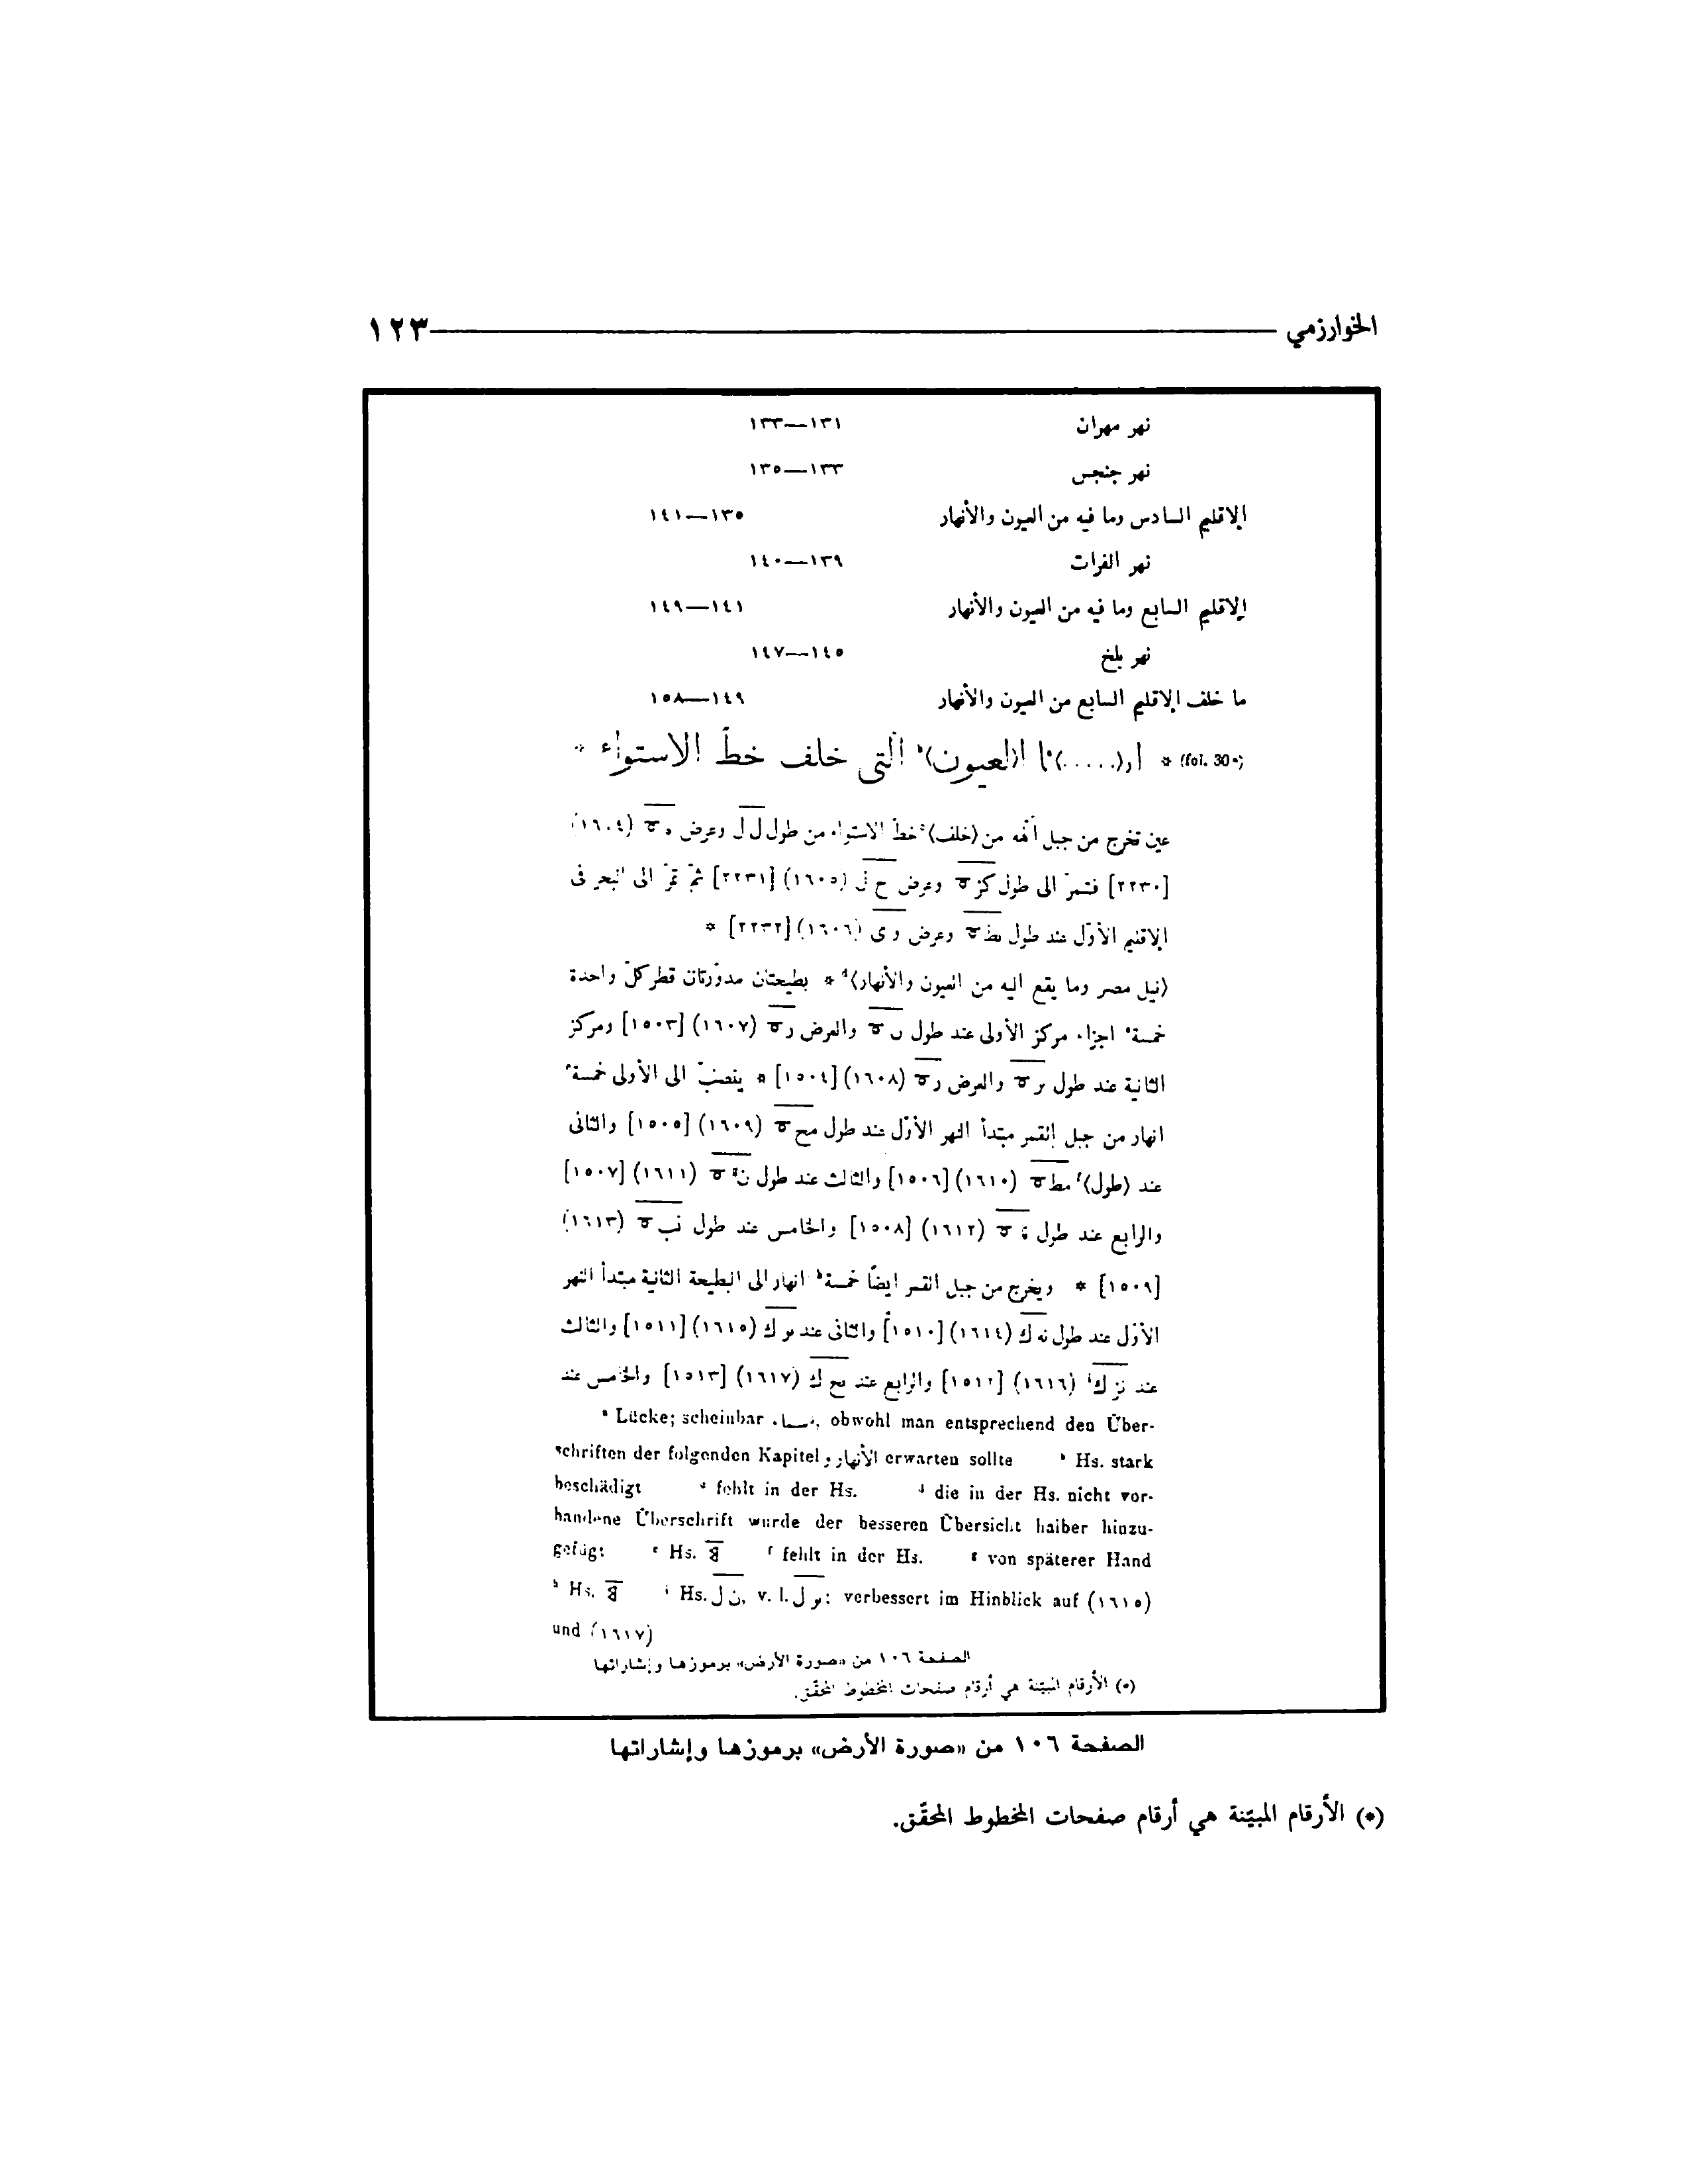 الخوارزمي ١٢٣
نهر مهران ١٣١—١٣٣
نهر جنجس ١٣٣—١٣٥
الإقليم السادس وما فيه من العيون والأنهار ١٣٥—١٤١
نهر الفرات ١٣٩—١٤٠
الإقليم السابع وما فيه من العيون والأنهار ١٤١—١٤٩
نهر بلخ ١٤٥—١٤٧
ما خلف الإقليم السابع من العيون والأنهار ١٤٩—١٥٨
(fol. 30ᵃ) * العيون⟩ᵇ التى خلف خطّ الاستواء *
عين تخرج من جبل من ⟨خلف⟩ خطّ الاستواء من طول ل ل وعرض (١٦٠٤)
[٢٢٣٠] فتمرّ الى طول كز ه وعرض ح ل (١٦٠٥) [٢٢٣١] ثمّ تمرّ الى البحر فى
الإقليم الأوّل عند طول وعرض و ى (١٦٠٦) [٢٢٣٢] *
⟨نيل مصر وما يقع اليه من العيون والأنهار⟩ * بطيحتان مدوّرتان قطر كلّ واحدة
خمسة اجزاء مركز الأولى عند طول ن ه والعرض ز ه (١٦٠٧) [١٥٠٣] ومركز
الثانية عند طول نز ه والعرض ز ه (١٦٠٨) [١٥٠٤] * ينصبّ الى الأولى خمسة
انهار من جبل القمر مبتدأ النهر الأوّل عند طول مح ه (١٦٠٩) [١٥٠٥] والثانى
عند ⟨طول⟩ مط ه (١٦١٠) [١٥٠٦] والثالث عند طول ن ه (١٦١١) [١٥٠٧]
والرابع عند طول ه (١٦١٢) [١٥٠٨] والخامس عند طول نب ه (١٦١٣)
[١٥٠٩] * ويخرج من جبل القمر ايضًا خمسة انهار الى البطيحة الثانية مبتدأ النهر
الأوّل عند طول نه ك (١٦١٤) [١٥١٠] والثانى عند نو ك (١٦١٥) [١٥١١] والثالث
عند نز ك (١٦١٦) [١٥١٢] والرابع عند نح ك (١٦١٧) [١٥١٣] والخامس عند
Lücke; scheinbar obwohl man entsprechend den Über-
schriften der folgenden Kapitel والأنهار erwarten sollte Hs. stark
beschädigt fehlt in der Hs. die in der Hs. nicht vor-
handene Überschrift wurde der besseren Übersicht halber hinzu-
gefügt Hs. fehlt in der Hs. von späterer Hand
Hs. Hs. ن ل, v. l. نو ل: verbessert im Hinblick auf (١٦١٥)
und (١٦١٧)
الصفحة ١٠٦ من «صورة الأرض» برموزها وإشاراتها
(*) الأرقام المبيّنة هي أرقام صفحات المخطوط المحقّق.
الصفحة ١٠٦ من «صورة الأرض» برموزها وإشاراتها
(*) الأرقام المبيّنة هي أرقام صفحات المخطوط المحقّق.